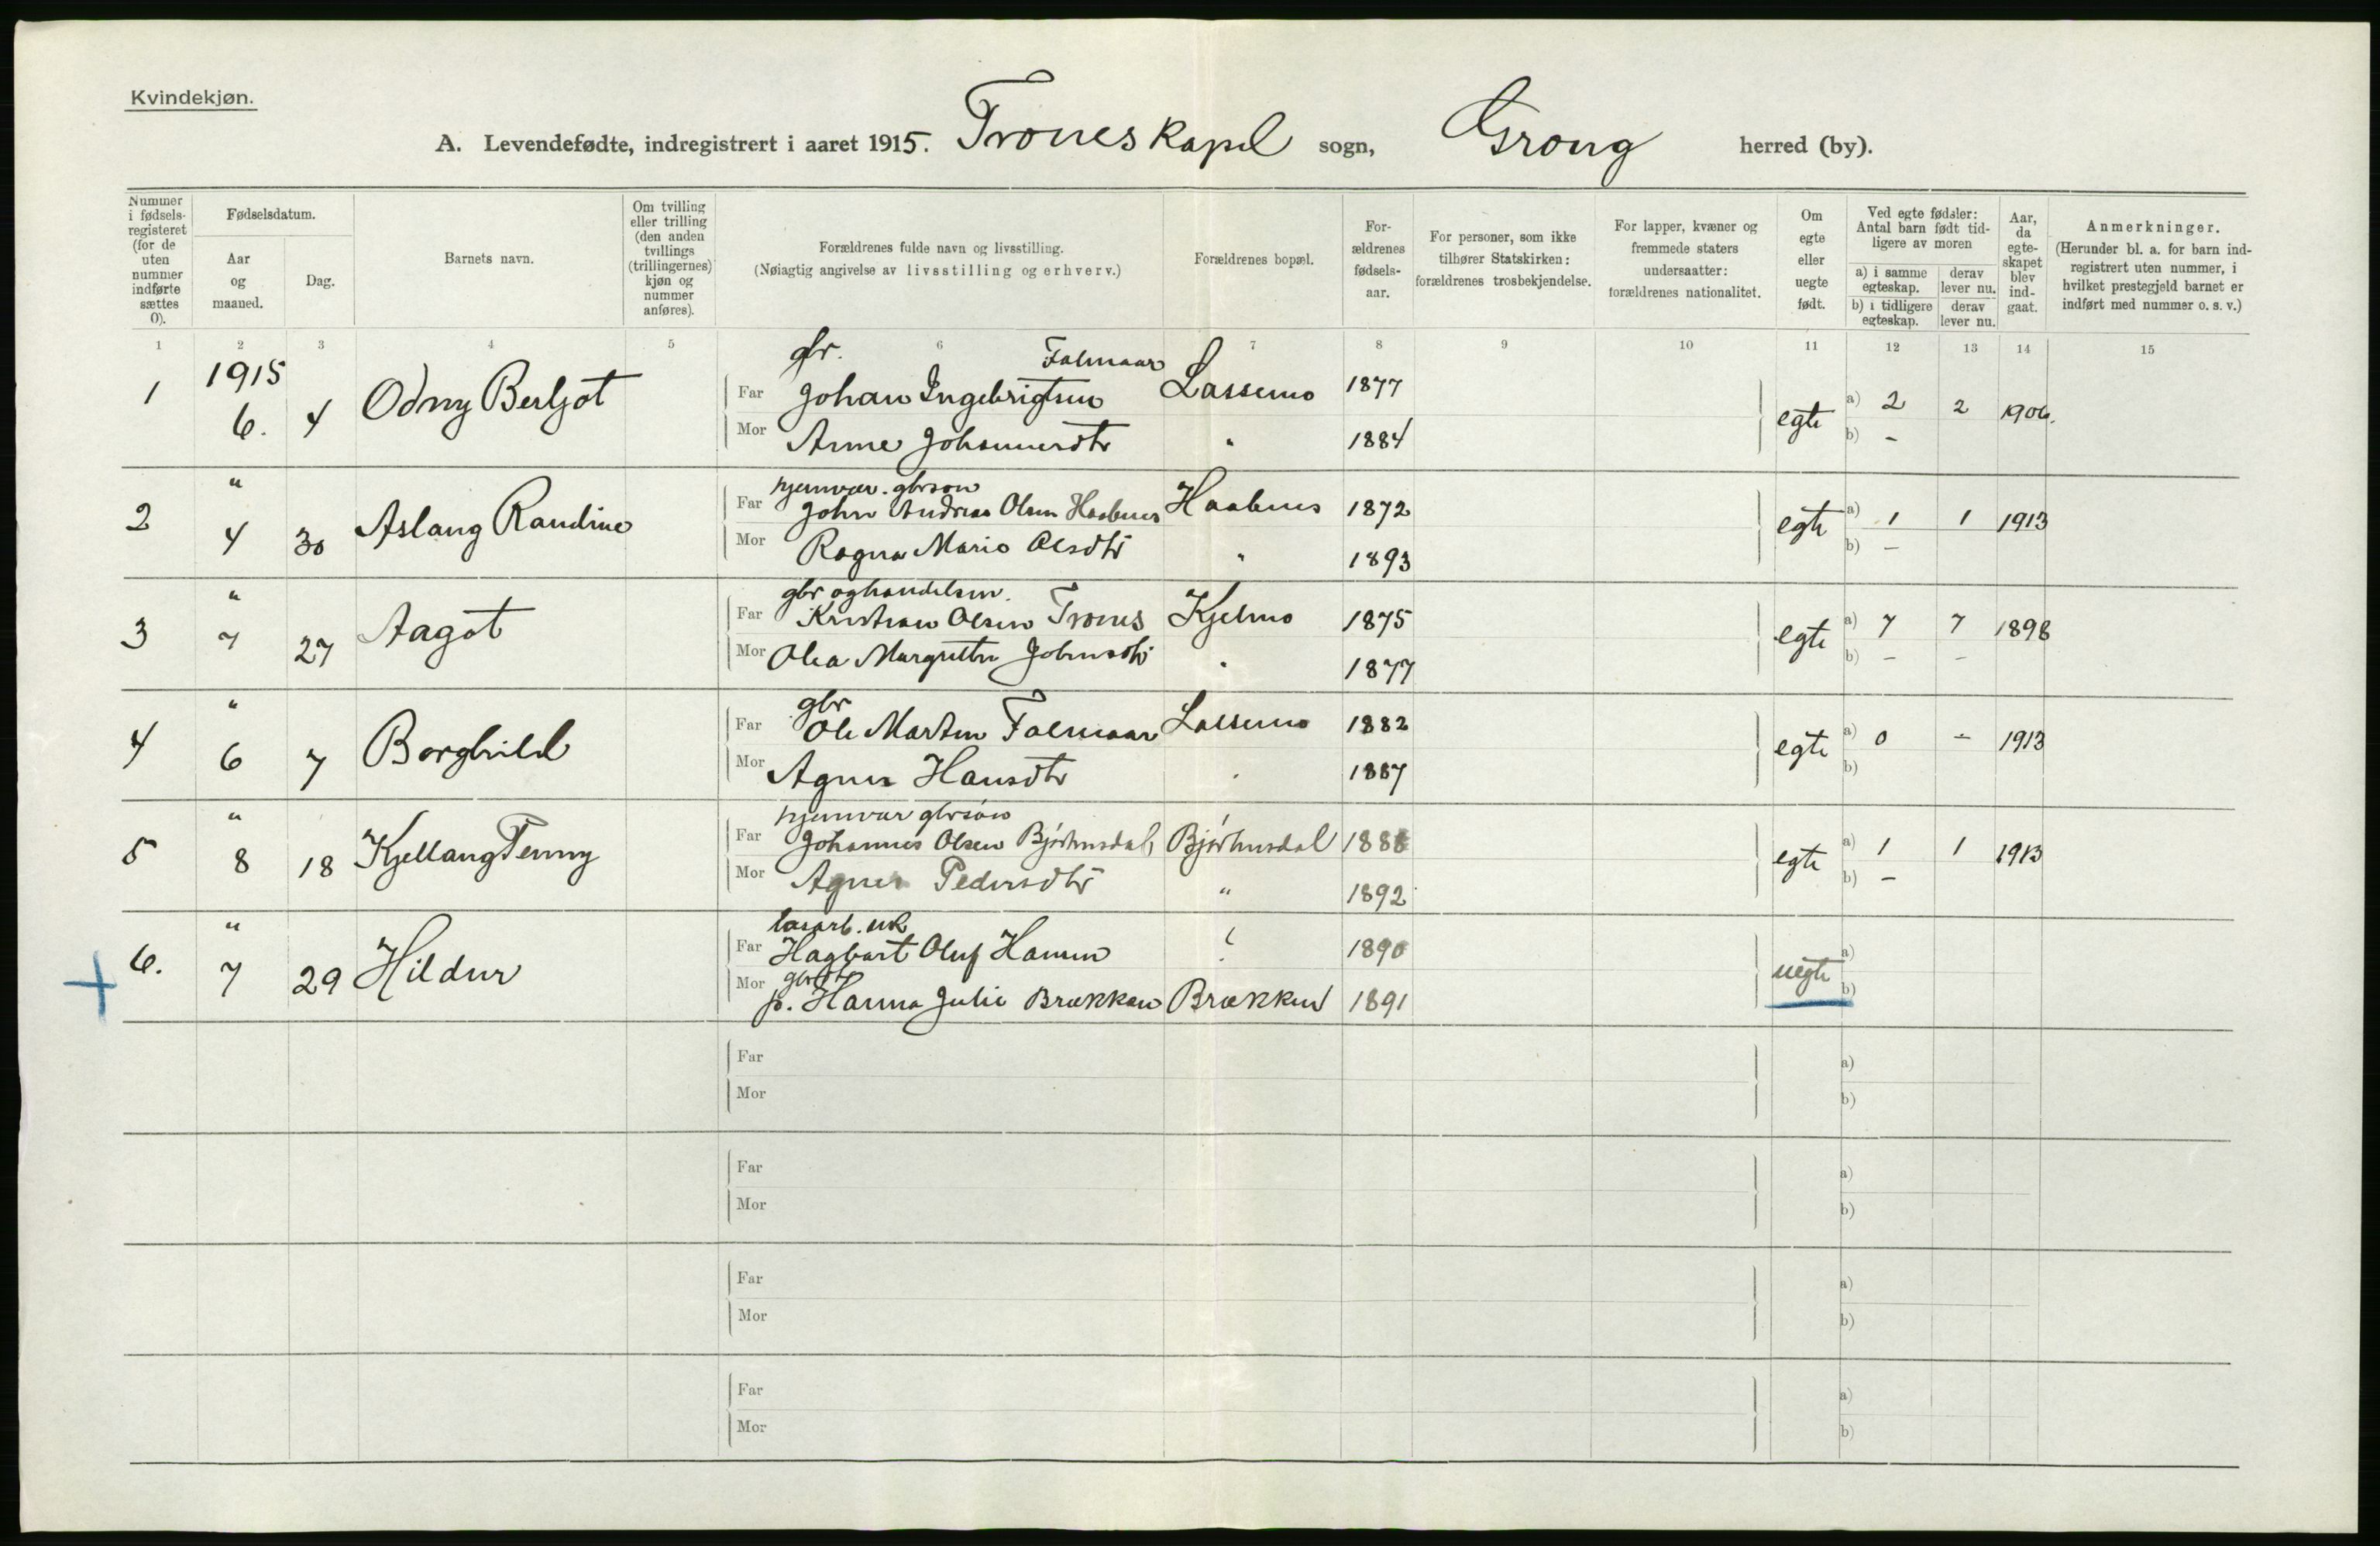 Kvindekjøn.
A. Levendefødte, indregistrert i aaret 1915. Trones Kapel sogn, Grong herred (by).
Nummer i fødselsregisteret (for de uten nummer indførte sættes 0).
Fødselsdatum.
Aar og maaned.
Dag.
Barnets navn.
Om tvilling eller trilling (den anden tvillings (trillingernes) kjøn og nummer anføres).
Forældrenes fulde navn og livsstilling.
(Nøiagtig angivelse av livsstilling og erhverv.)
Forældrenes bopæl.
Forældrenes fødselsaar.
For personer, som ikke tilhører Statskirken: forældrenes trosbekjendelse.
For lapper, kvæner og fremmede staters undersaatter: forældrenes nationalitet.
Om egte eller uegte født.
Ved egte fødsler: Antal barn født tidligere av moren
a) i samme egteskap.
derav lever nu.
b) i tidligere egteskap.
derav lever nu.
Aar, da egteskapet blev indgaat.
Anmerkninger.
(Herunder bl. a. for barn indregistrert uten nummer, i hvilket prestegjeld barnet er indført med nummer o. s. v.)
1 2 3 4 5 6 7 8 9 10 11 12 13 14 15
1 1915 6. 4 Odny Berljot
gbr. Falmaar
Far Johan Ingebrigtsen Lassemo 1877
Mor Anne Johannesdtr " 1884
egte a) 2 2 1906.
b) -
2 " 4 30 Aslaug Randine
hjemvær. gbrsøn
Far John Andreas Olsen Haabnes Haabnes 1872
Mor Ragna Marie Olsdtr " 1893
egte a) 1 1 1913
b) -
3 " 7 27 Aagot
gbr og handelsm.
Far Kristian Olsen Trones Kjelmo 1875
Mor Olea Margrethe Johnsdtr " 1877
egte a) 7 7 1898
b) - -
4 " 6 7 Borghild
gbr
Far Ole Martin Falmaar Lassemo 1882
Mor Agnes Hansdtr " 1887
egte a) 0 - 1913
b)
5 " 8 18 Kjellaug Jenny
hjemvær gbrsøn
Far Johannes Olsen Bjørhusdal, Bjørhusdal 1888
Mor Agnes Pedersdtr " 1892
egte a) 1 1 1913
b) -
6. " 7 29 Hildur
løsarb. uk
Far Hagbart Oluf Hamm ? 1890
gbrdtr
Mor p. Hanna Julie Brækken Brækken 1891
uegte a)
b)
Far a)
Mor b)
Far a)
Mor b)
Far a)
Mor b)
Far a)
Mor b)